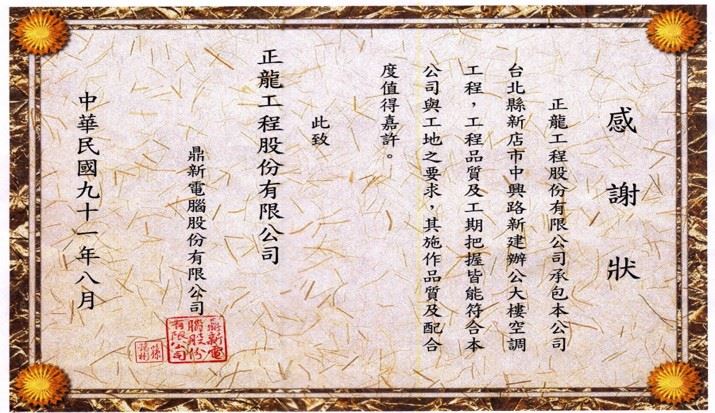 感謝狀
正龍工程股份有限公司承包本公司
台北縣新店市中興路新建辦公大樓空調
工程，工程品質及工期把握皆能符合本
公司與工地之要求，其施作品質及配合
度值得嘉許。
此致
正龍工程股份有限公司
鼎新電腦股份有限公司
鼎新電
腦股份
有限公司
中華民國九十一年八月